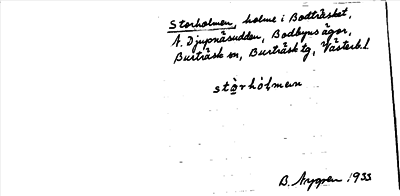 Storholmen, holme i Bodträsket,
A. Djupnäsudden, Bodbyns ägor,
Burträsk sn, Burträsk tg, Västerb. l.
stòrhólmen
B. Nygren 1933